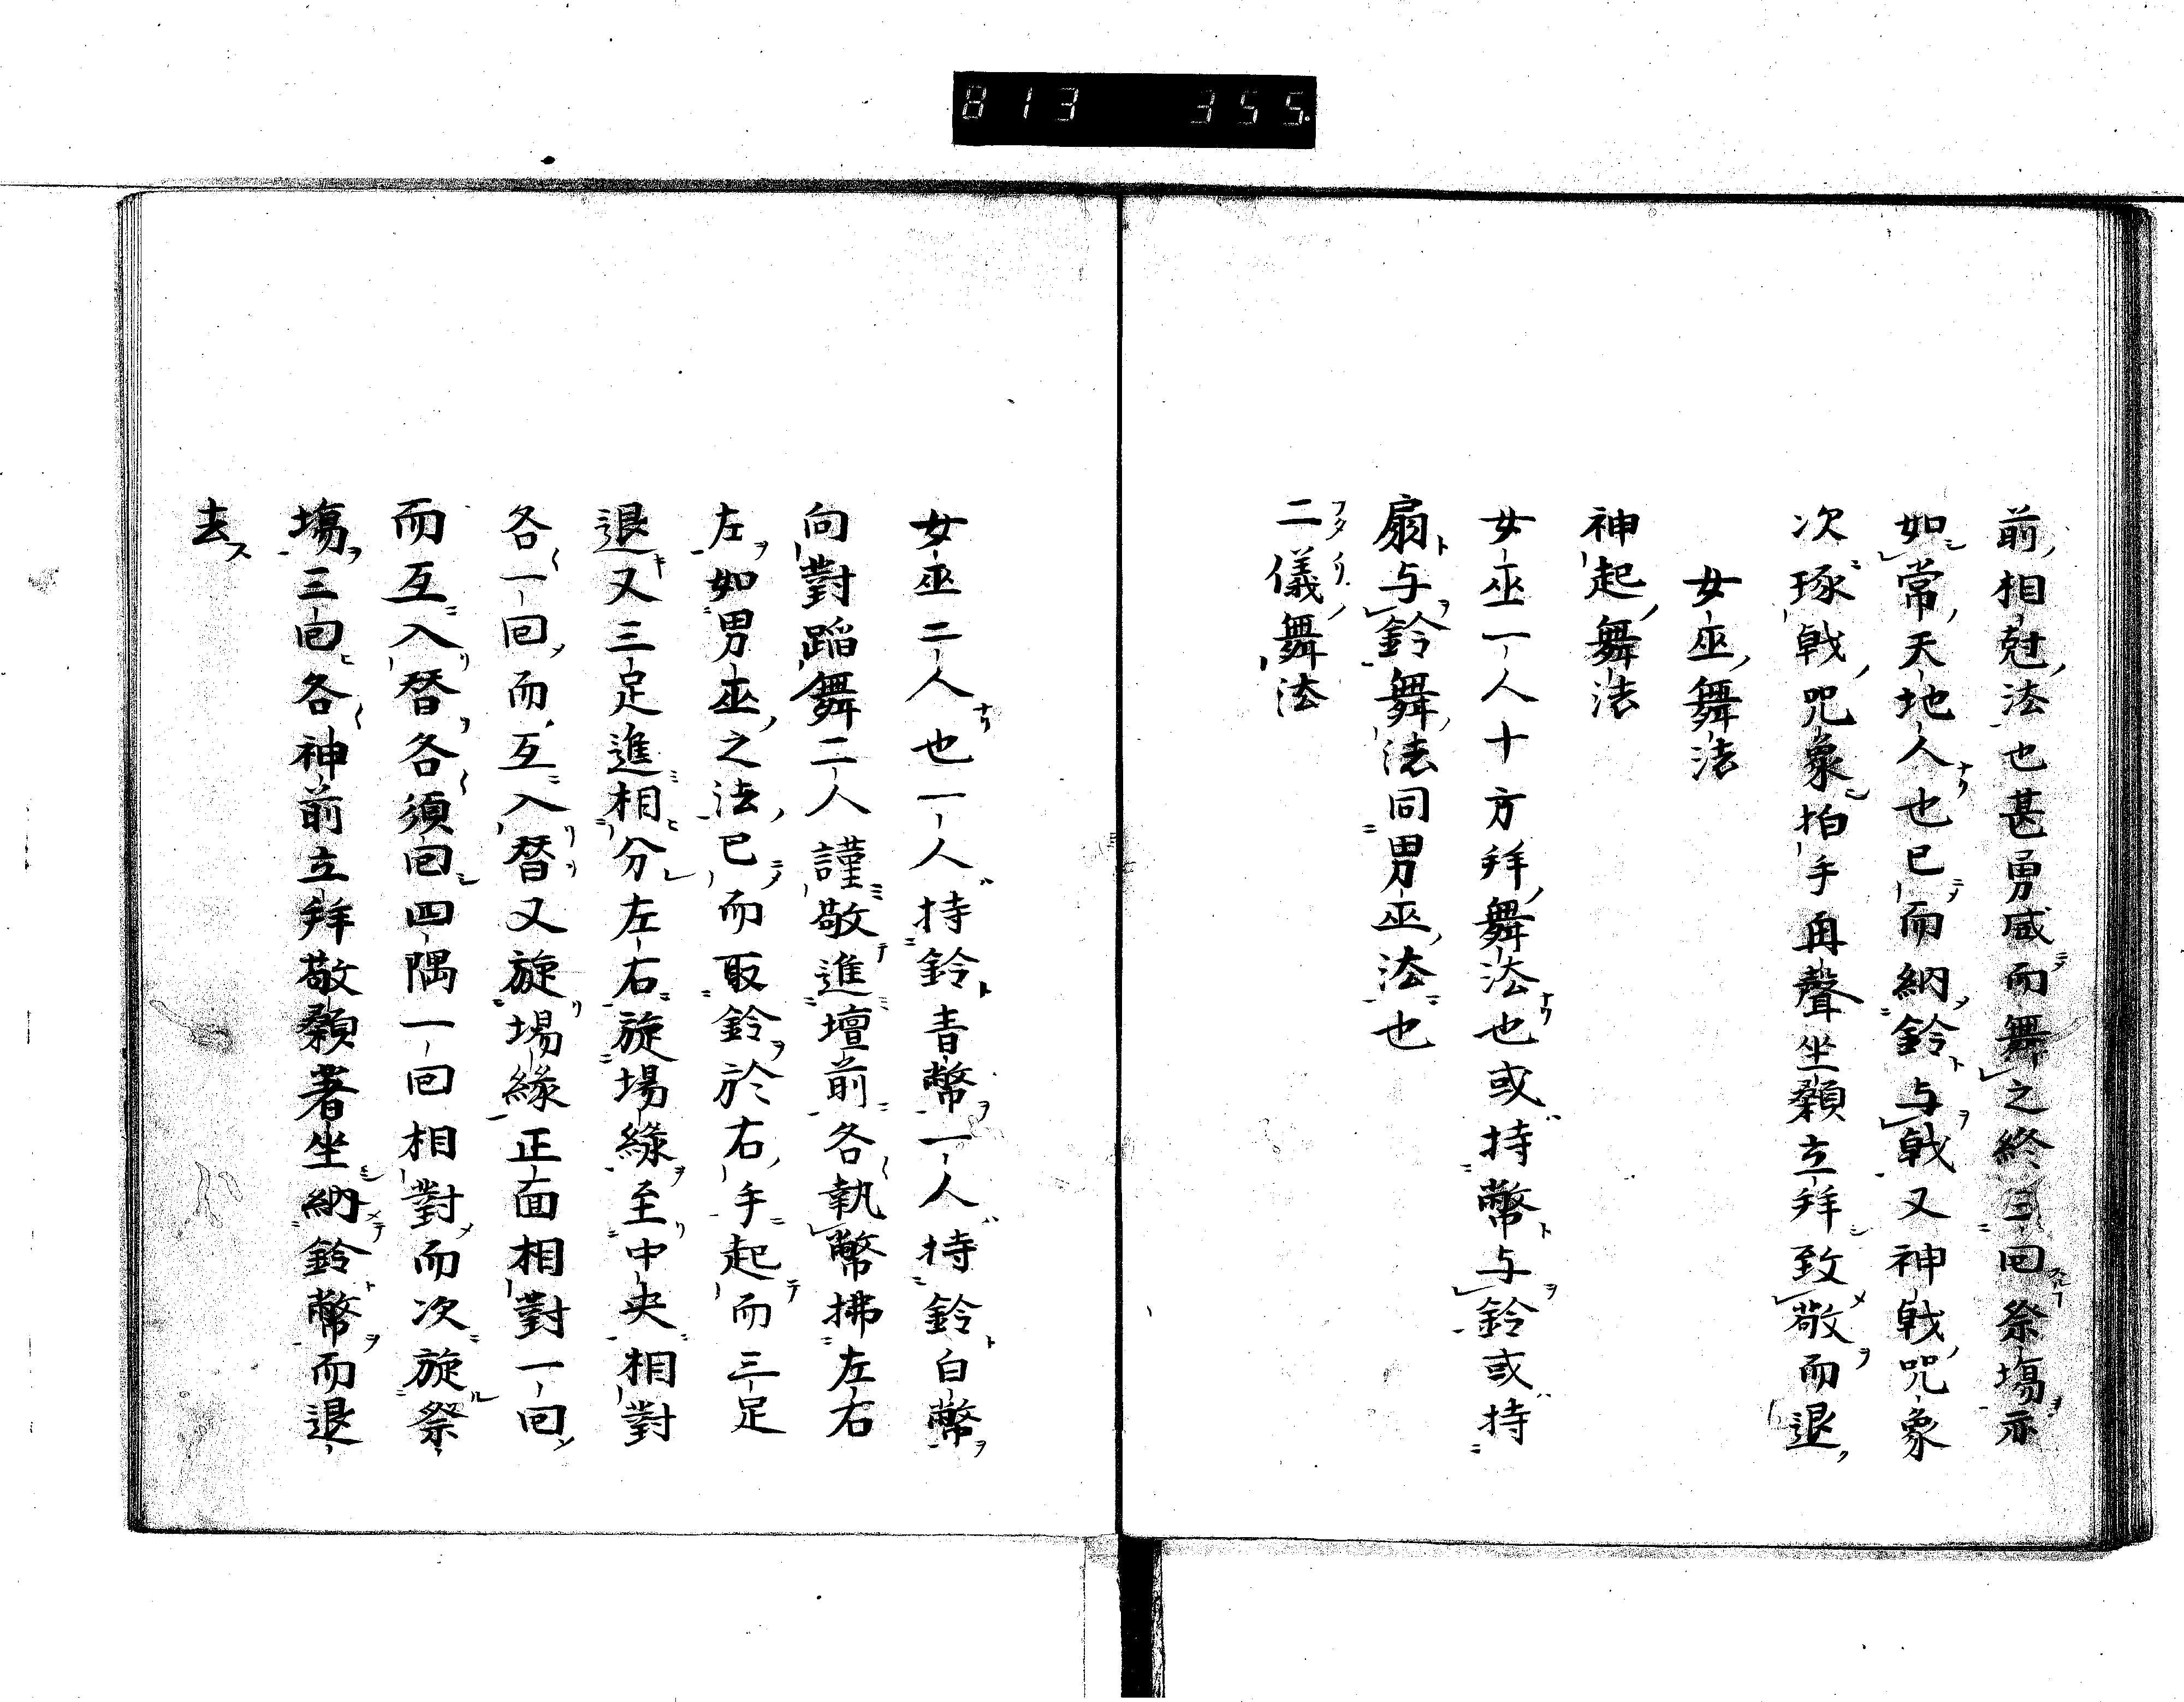 813 355.
前相尅法也甚勇威而舞之終三回祭場亦
如常天地人也已而納鈴与戟又神戟咒象
次琢戟咒象拍手再聲坐顙立拜致敬而退
女巫舞法
神起舞法
女巫一人十方拜舞法也或持幣与鈴或持
扇与鈴舞法同男巫法也
二儀舞法
女巫二人也一人持鈴青幣一人持鈴白幣
向對蹈舞二人謹敬進壇前各執幣拂左右
左如男巫之法已而取鈴於右手起而三足
退又三足進相分左右旋場緣至中央相對
各一回而互入替又旋場緣正面相對一回
而互入替各須回四隅一回相對而次旋祭
場三回各神前立拜敬顙著坐納鈴幣而退
去